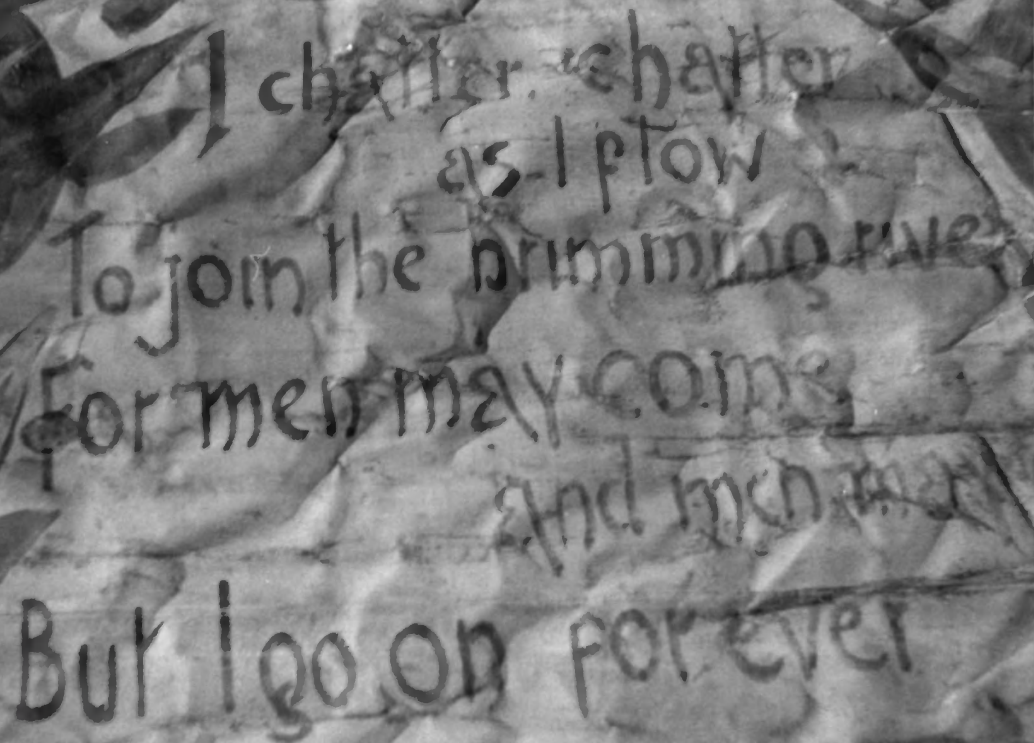 I chatter, chatter
as I flow
To join the brimming river
For men may come
and men may
But I go on forever